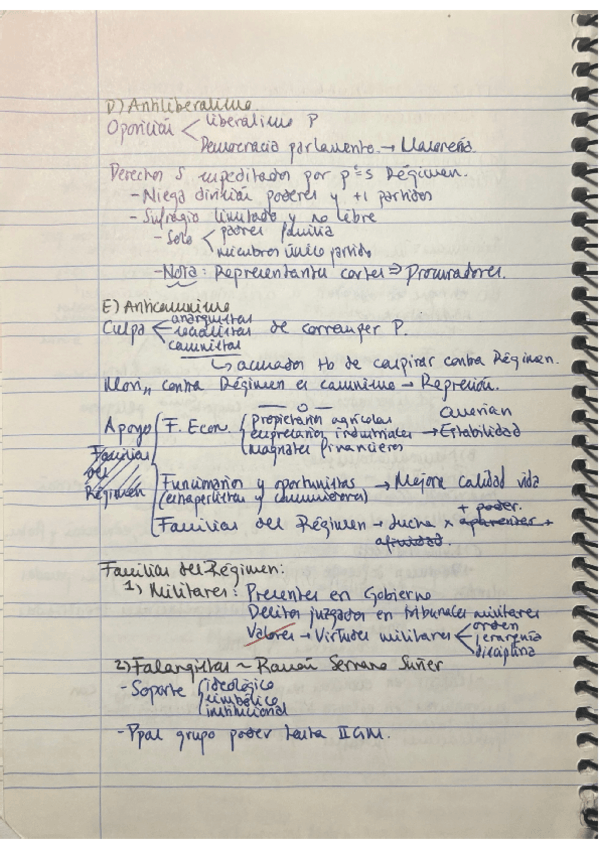 D) Antiliberalismo.
Oposición < liberalismo P
Democracia parlamento. → Masonería.
Derechos S supeditados por p^os Régimen.
- Niega división poderes y +1 partidos
- Sufragio limitado y no libre
- Solo < padres familia
miembros único partido
- Nota: Representantes cortes ⇒ Procuradores.
E) Anticomunismo
Culpa < anarquistas
socialistas de corromper P.
comunistas
↳ acusados tb de conspirar contra Régimen.
contra Régimen es comunismo → Represión.
Apoyo { F. Econ. { propietarios agrícolas
empresarios industriales → Estabilidad
Querían
magnates financieros
Familias del Régimen
Funcionarios y oportunistas → Mejore calidad vida
(estraperlistas y )
Familias del Régimen → lucha x aparentes +
+ poder.
afinidad.
Familias del Régimen:
1) Militares: Presentes en Gobierno
Delitos juzgados en tribunales militares
Valores → Virtudes militares < orden
jerarquía
disciplina
2) Falangistas ~ Ramón Serrano Suñer
- Soporte { ideológico
simbólico
institucional
- Ppal grupo poder hasta IIGM.